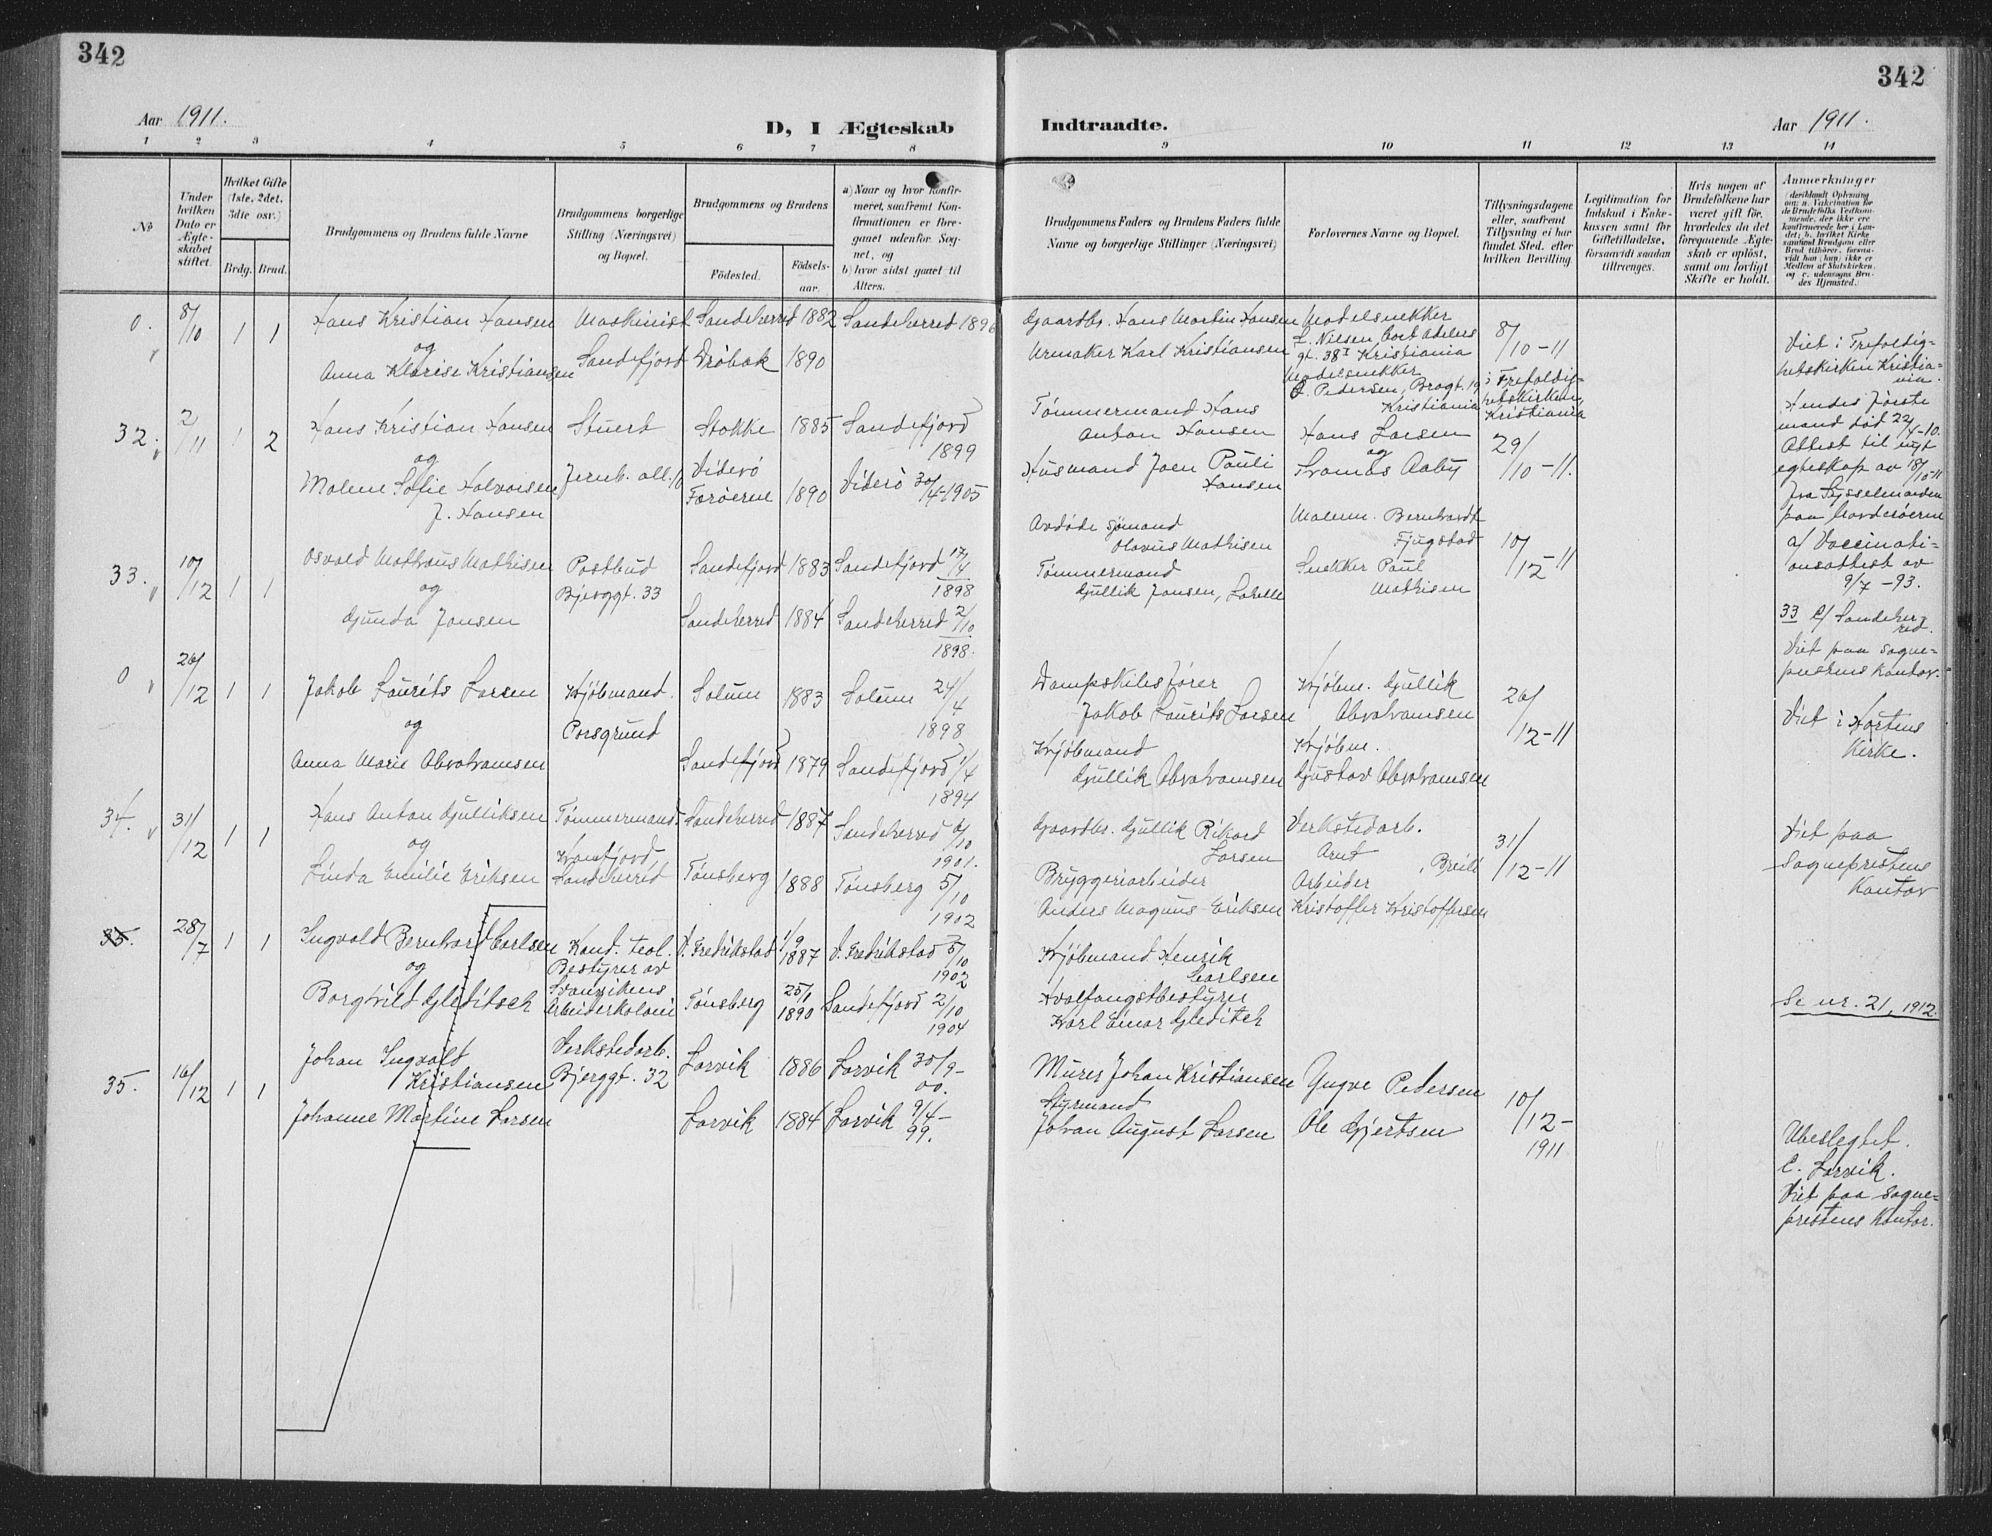 342
342
Aar 1911.
D, I Ægteskab
Indtraadte.
Aar 1911.
1 2 3 4 5 6 7 8
9 10 11 12 13 14
No
Under hvilken Dato er Ægteskabet stiftet.
Hvilket Gifte (1ste, 2det, 3die osv.)
Brdg. Brud.
Brudgommens og Brudens fulde Navne
Brudgommens borgerlige Stilling (Næringsvei) og Bopæl.
Brudgommens og Brudens
Fødested. Fødselsaar.
a) Naar og hvor konfirmeret, saafremt Konfirmationen er foregaaet udenfor Sognet, og
b) hvor sidst gaaet til Alters.
Brudgommens Faders og Brudens Faders fulde Navne og borgerlige Stillinger (Næringsvei)
Forlovernes Navne og Bopæl.
Tillysningsdagene eller, saafremt Tillysning ei har fundet Sted, efter hvilken Bevilling.
Legitimation for Indskud i Enkekassen samt for Giftetilladelse, forsaavidt saadan tiltrænges.
Hvis nogen af Brudefolkene har været gift før, hvorledes da det foregaaende Ægteskab er opløst, samt om lovligt Skifte er holdt.
Anmerkninger
0. 8/10 1 1
Hans Kristian Hansen
og
Anna Klarise Kristiansen
Maskinist
Sandefjord
Sandeherred 1882 Sandeherred 1896
Drøbak 1890
Gaardbr. Hans Martin Hansen
Urmaker Karl Kristiansen
Modelsnekker
L. Nielsen, Cort Adelers
gt. 38 I Kristiania
Modelsnekker
Pedersen, Brogt. 19
Kristiania
8/10-11
i Trefoldighetskirken, Kristiania
Viet i Trefoldighetskirken Kristiania.
32. 2/11 1 2
Hans Kristian Hansen
og
Malene Sofie Halvorsen
J. Hansen
Stuert
Jernb. all. 10
Stokke 1885 Sandefjord 1899
Viderø
Færøerne 1890 Viderø 30/4-1905
Tømmermand Hans
Anton Hansen
Husmand Joen Pauli
Hansen
Hans Larsen
og
Tromas Aaby
29/10-11.
Hendes første
mand død 22/4-10.
Attest til nyt
egteskap av 18/10-11
fra Sysselmanden
paa Norderøerne
33. 10/12 1 1
Osvald Mathæus Mathisen
og
Gunda Jansen
Postbud
Bjerggt. 33
Sandefjord 1883 Sandefjord 17/4 1898
Sandeherred 1884 Sandeherred 2/10 1898.
Avdøde sjømand
Olavus Mathisen
Tømmermand
Gullik Jansen,
Malerm. Bernhardt
Fjugstad
Snekker Paul
Mathisen
10/12-11
a/ Vaccinationsattest av
9/7-93.
33 c/ Sandeherred.
Viet paa sogneprestens kontor.
0 26/12 1 1
Jakob Laurits Larsen
og
Anna Marie Abrahamsen
Kjøbmand.
Porsgrund
Solum 1883 Solum 24/4 1898
Sandefjord 1879 Sandefjord 1/4 1894
Dampskibsfører
Jakob Laurits Larsen
Kjøbmand
Gullik Abrahamsen
Kjøbm. Gullik
Abrahamsen
Kjøbm.
Gustav Abrahamsen
26/12-11
Viet i Hortens
Kirke.
34. 31/12 1 1
Hans Anton Gulliksen
og
Linda Emilie Eriksen
Tømmermand.
Sandeherred
Sandeherred 1887 Sandeherred 6/10 1901.
Tønsberg 1888 Tønsberg 5/10 1902
Gaardbr. Gullik Rikard
Larsen
Bryggeriarbeider
Anders Magnus Eriksen
Verkstedarb.
Arnt
Arbeider
Kristoffer Kristoffersen
31/12-11
Viet paa
Sogneprestens
Kontor
35. 28/7 1 1
Ingvald Bernhard Carlsen
og
Borghild Gleditsch
Kand. teol.
Bestyrer av
Svanvikens
Arbeiderkoloni
V. Fredrikstad 1/9 1887 V. Fredrikstad 5/10 1902
Tønsberg 25/1 1890 Sandefjord 2/10 1904
Kjøbmand Henrik
Carlsen
Hvalfangstbestyrer
Karl Einar Gleditsch
Se nr. 21, 1912.
35. 16/12 1 1
Johan Ingvalt
Kristiansen
Johanne Martine Larsen
Verkstedarb.
Bjerggt. 32
Larvik 1886 Larvik 30/9-00.
Larvik 1884 Larvik 9/4-99.
Murer Johan Kristiansen
Styrmand
Johan August Larsen
Yngve Pedersen
Ole Gjertsen
10/12-1911
Ubeslegtet.
C. Larvik.
Viet paa sogneprestens Kontor.